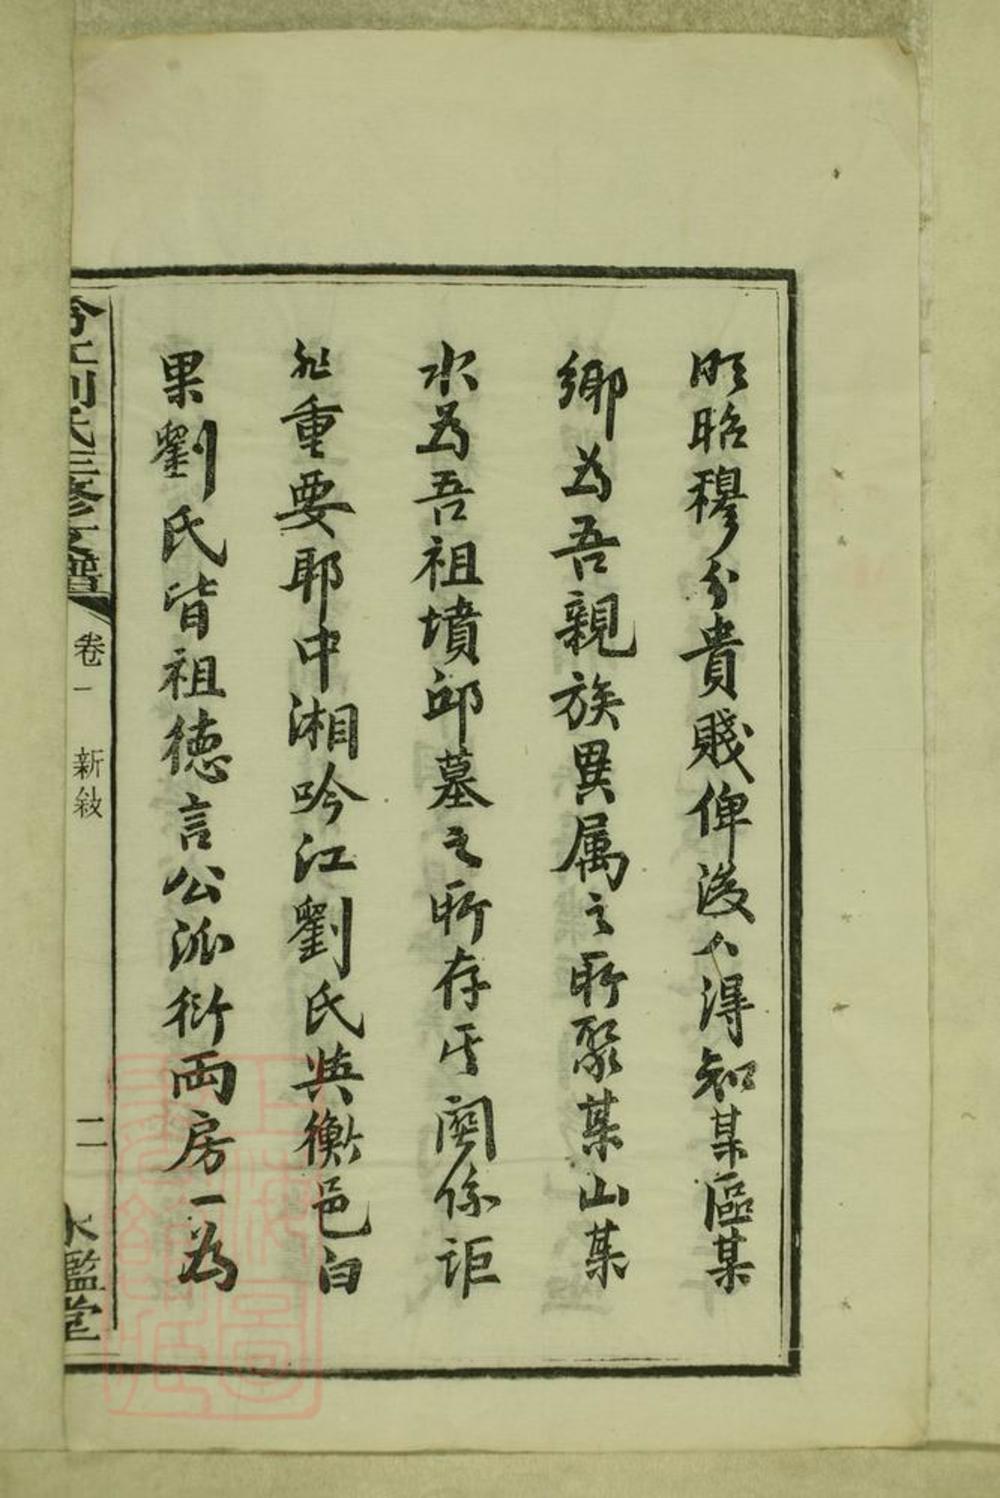 明昭穆分貴賤俾後人得知某區某
鄉為吾親族異属之所聚某山某
水為吾祖墳邱墓之所存其関係詎
非重要耶中湘吟江劉氏與衡邑白
果劉氏皆祖德言公派衍兩房一為
吟江劉氏三修支譜
卷一 新敍
二
水鑑堂